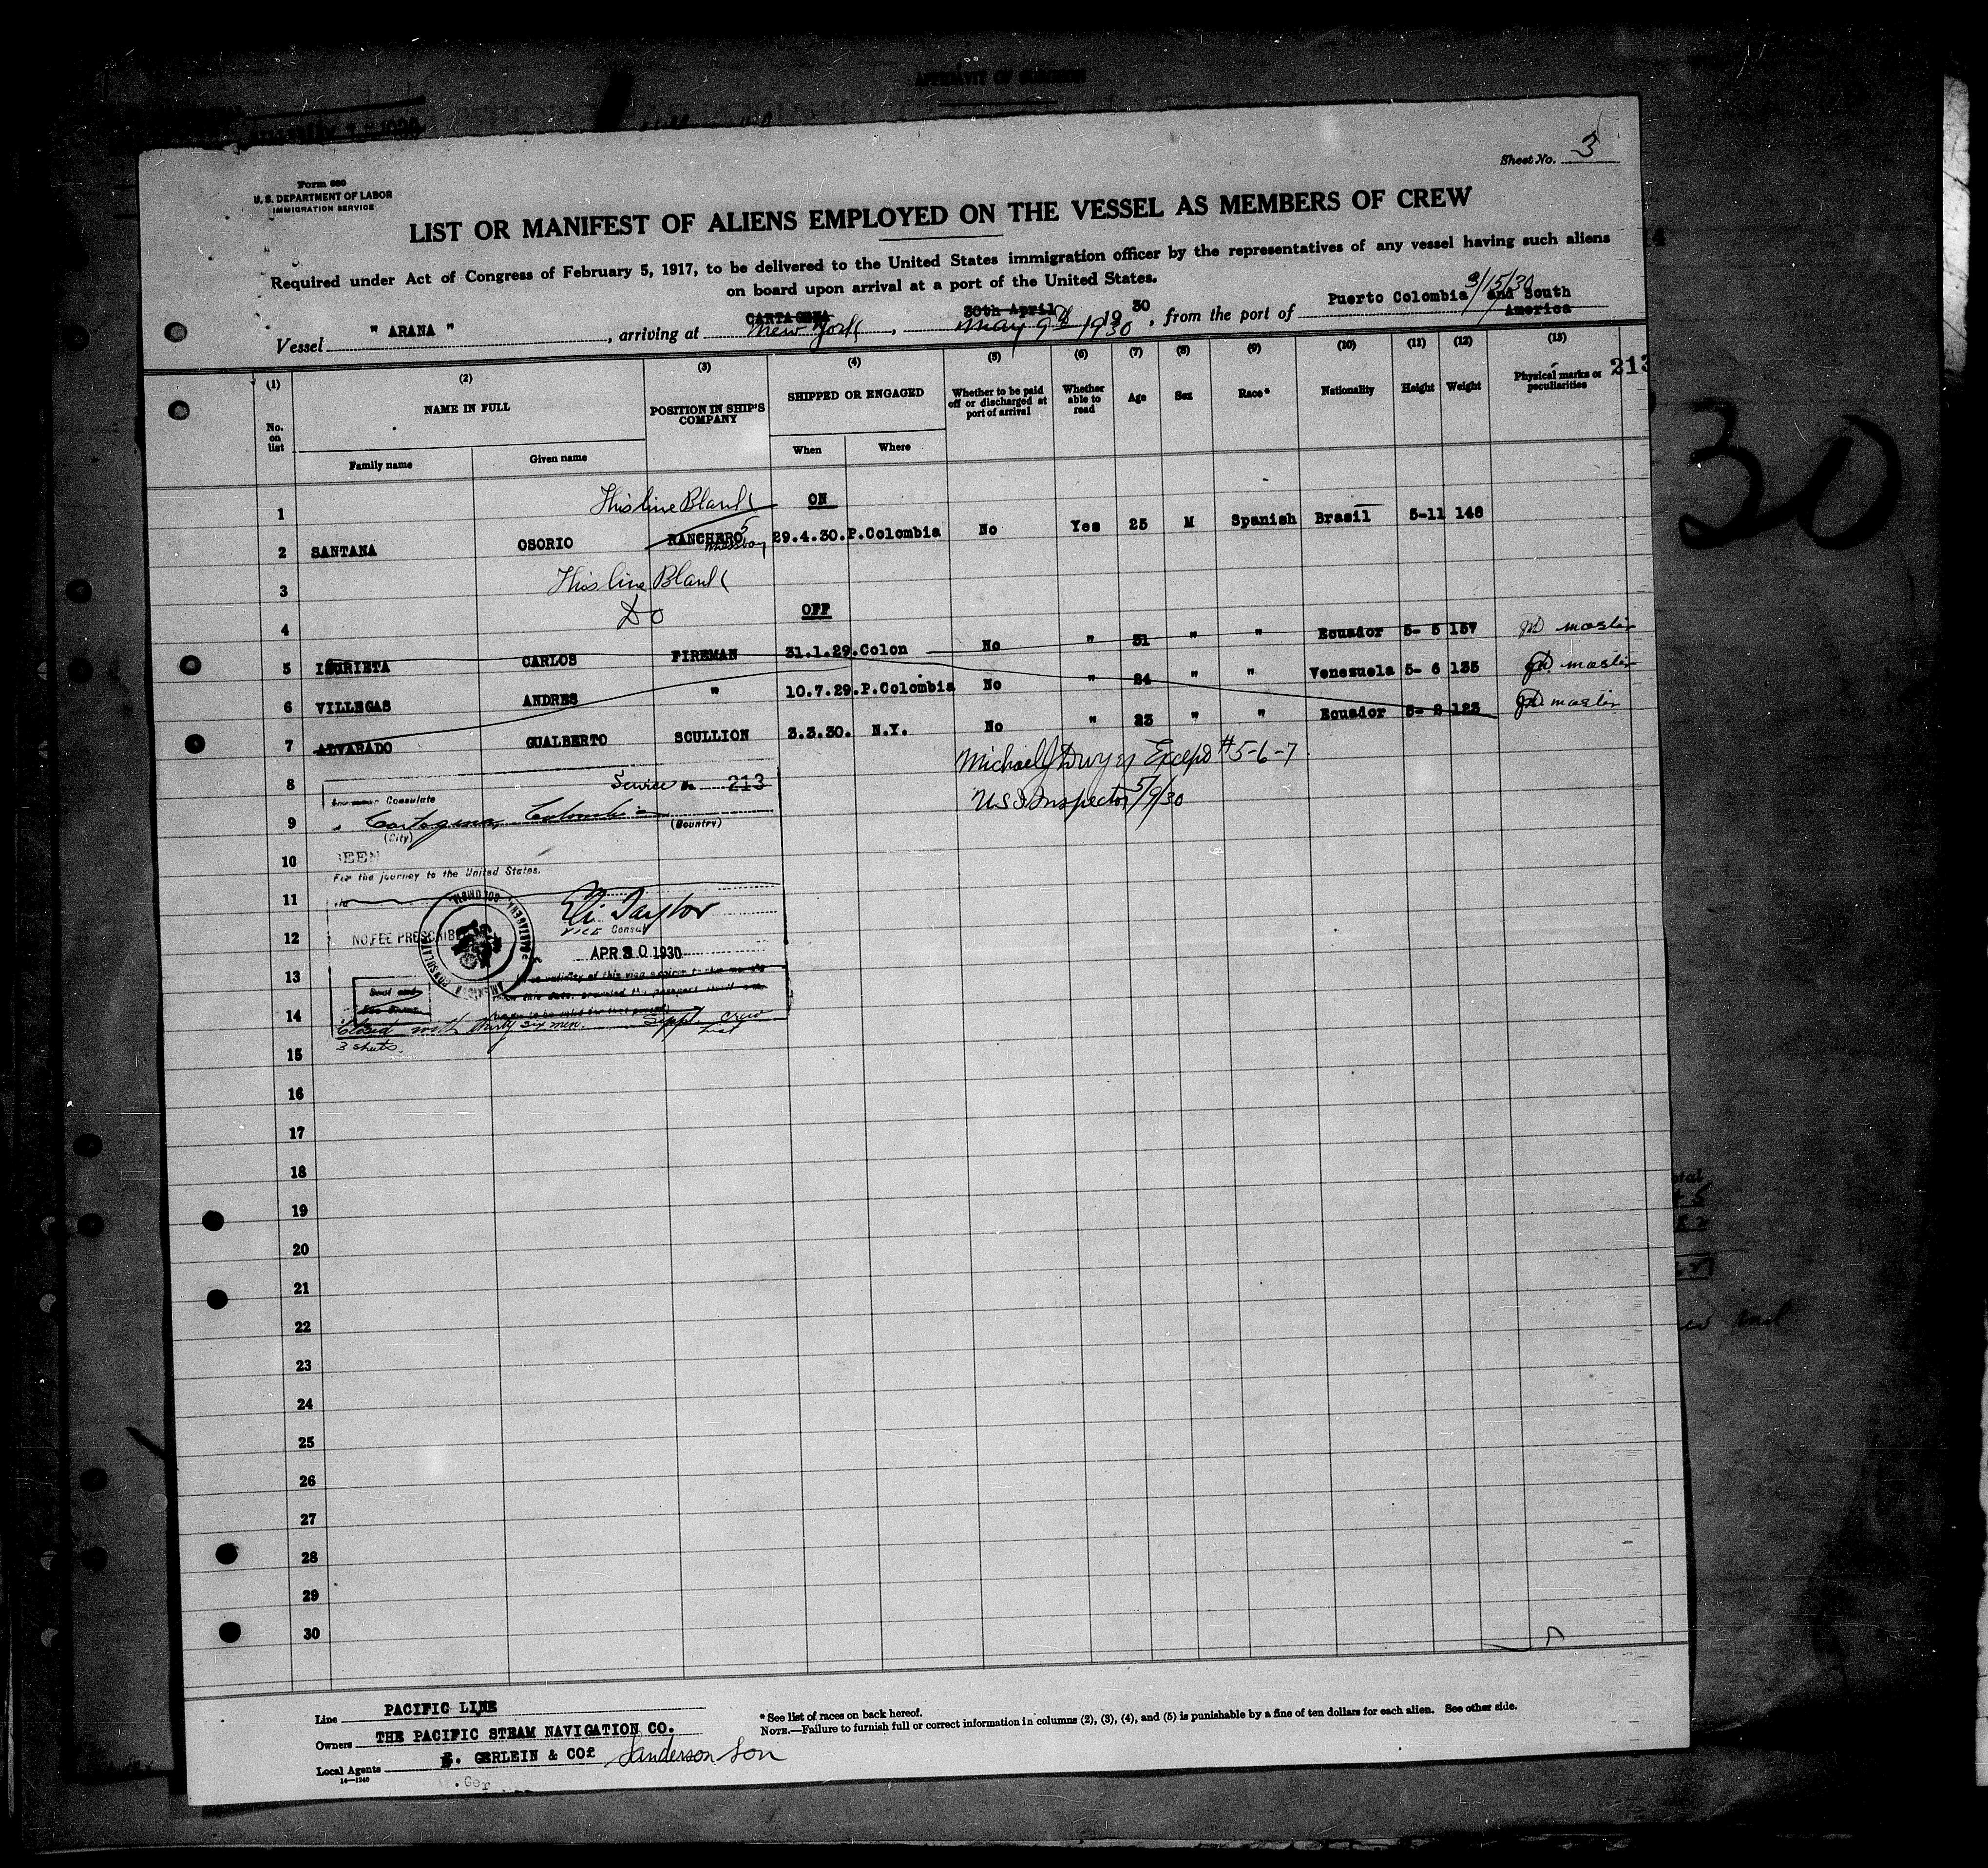 AFFIDAVIT OF SURGEON
Sheet No. 3
Form 680
U. S. DEPARTMENT OF LABOR
IMMIGRATION SERVICE
LIST OR MANIFEST OF ALIENS EMPLOYED ON THE VESSEL AS MEMBERS OF CREW
Required under Act of Congress of February 5, 1917, to be delivered to the United States immigration officer by the representatives of any vessel having such aliens
on board upon arrival at a port of the United States.
3/15/30
CARTAGENA 30th April 30 Puerto Colombia and South America
Vessel " ARANA ", arriving at New York, May 9th 1930, from the port of
213
(1) (2) (3) (4) (5) (6) (7) (8) (9) (10) (11) (12) (13)
No. on list NAME IN FULL POSITION IN SHIP'S COMPANY SHIPPED OR ENGAGED Whether to be paid off or discharged at port of arrival Whether able to read Age Sex Race* Nationality Height Weight Physical marks or peculiarities
Family name Given name When Where
1 This line Blank ON
2 SANTANA OSORIO RANCHERO Messboy 29.4.30. P.Colombia No Yes 25 M Spanish Brasil 5-11 146
3 This line Blank
4 Do OFF
5 IZURIETA CARLOS FIREMAN 31.1.29. Colon No " 31 " " Ecuador 5- 5 157
6 VILLEGAS ANDRES " 10.7.29. P.Colombia No " 24 " " Venezuela 5- 6 135
7 ALVARADO GUALBERTO SCULLION 3.3.30. N.Y. No " 23 " " Ecuador 5- 2 123
Michael J Dwyer Except #5-6-7
US Inspector 5/9/30
8 Service No. 213
Consulate
9 Cartagena, Colombia
(City) (Country)
10 SEEN
For the journey to the United States.
11
Eli Taylor
12 NO FEE PRESCRIBED
VICE Consul
APR 30 1930
AMERICAN CONSULATE CARTAGENA, COLOMBIA
13
The validity of this visa expires
14
Closed with thirty six men. Suppl. Crew List
3 sheets.
15
16
17
18
19
20
21
22
23
24
25
26
27
28
29
30
30
Line PACIFIC LINE
Owners THE PACIFIC STEAM NAVIGATION CO.
Local Agents E. GERLEIN & CO. Sanderson Son
14—1240
* See list of races on back hereof.
NOTE.—Failure to furnish full or correct information in columns (2), (3), (4), and (5) is punishable by a fine of ten dollars for each alien. See other side.